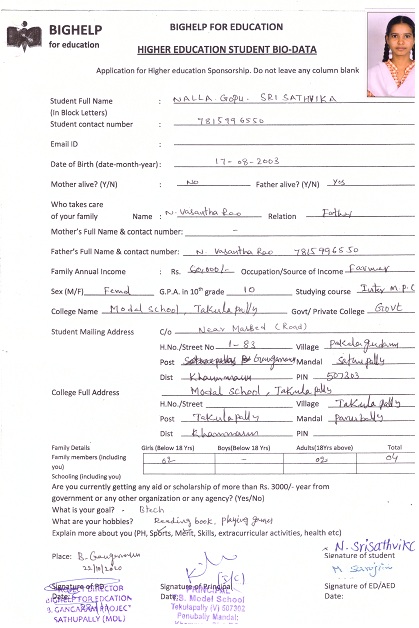 BIGHELP
for education
BIGHELP FOR EDUCATION
HIGHER EDUCATION STUDENT BIO-DATA
Application for Higher education Sponsorship. Do not leave any column blank
Student Full Name : NALLA GOPU. SRI SATHVIKA
(In Block Letters)
Student contact number : 7815996550
Email ID :
Date of Birth (date-month-year): 17-08-2003
Mother alive? (Y/N) : No Father alive? (Y/N) : Yes
Who takes care
of your family Name : N. Vasantha Rao Relation : Father
Mother's Full Name & contact number: -
Father's Full Name & contact number: N. Vasantha Rao 7815996550
Family Annual Income : Rs. 60,000/- Occupation/Source of Income Farmer
Sex (M/F) G.P.A. in 10th grade 10 Studying course Inter M.P.C
College Name Model School, Takulapally Govt/ Private College Govt
Student Mailing Address C/o Near Masjed (Road)
H.No./Street No 1-83 Village
Post Mandal
Dist Khammam PIN 507303
College Full Address Model school, Takulapally
H.No./Street Village Takulapally
Post Takulapally Mandal
Dist Khammam PIN
Family Details Girls (Below 18 Yrs) Boys(Below 18 Yrs) Adults(18Yrs above) Total
Family members (including you) 02 - 02 04
Schooling (including you)
Are you currently getting any aid or scholarship of more than Rs. 3000/- year from
government or any other organization or any agency? (Yes/No)
What is your goal? - Btech
What are your hobbies? Reading book, playing games
Explain more about you (PH, Sports, Merit, Skills, extracurricular activities, health etc)
Place: N. Srisathvika
Signature of student
Signature of PD Signature of Principal Signature of ED/AED
Date: Date: Date:
PROJECT DIRECTOR PRINCIPAL
BIGHELP FOR EDCATION T.S. Model School
B. GANGARAM PROJECT Tekulapally (V) 507302
SATHUPALLY (MDL) Penubally Mandal